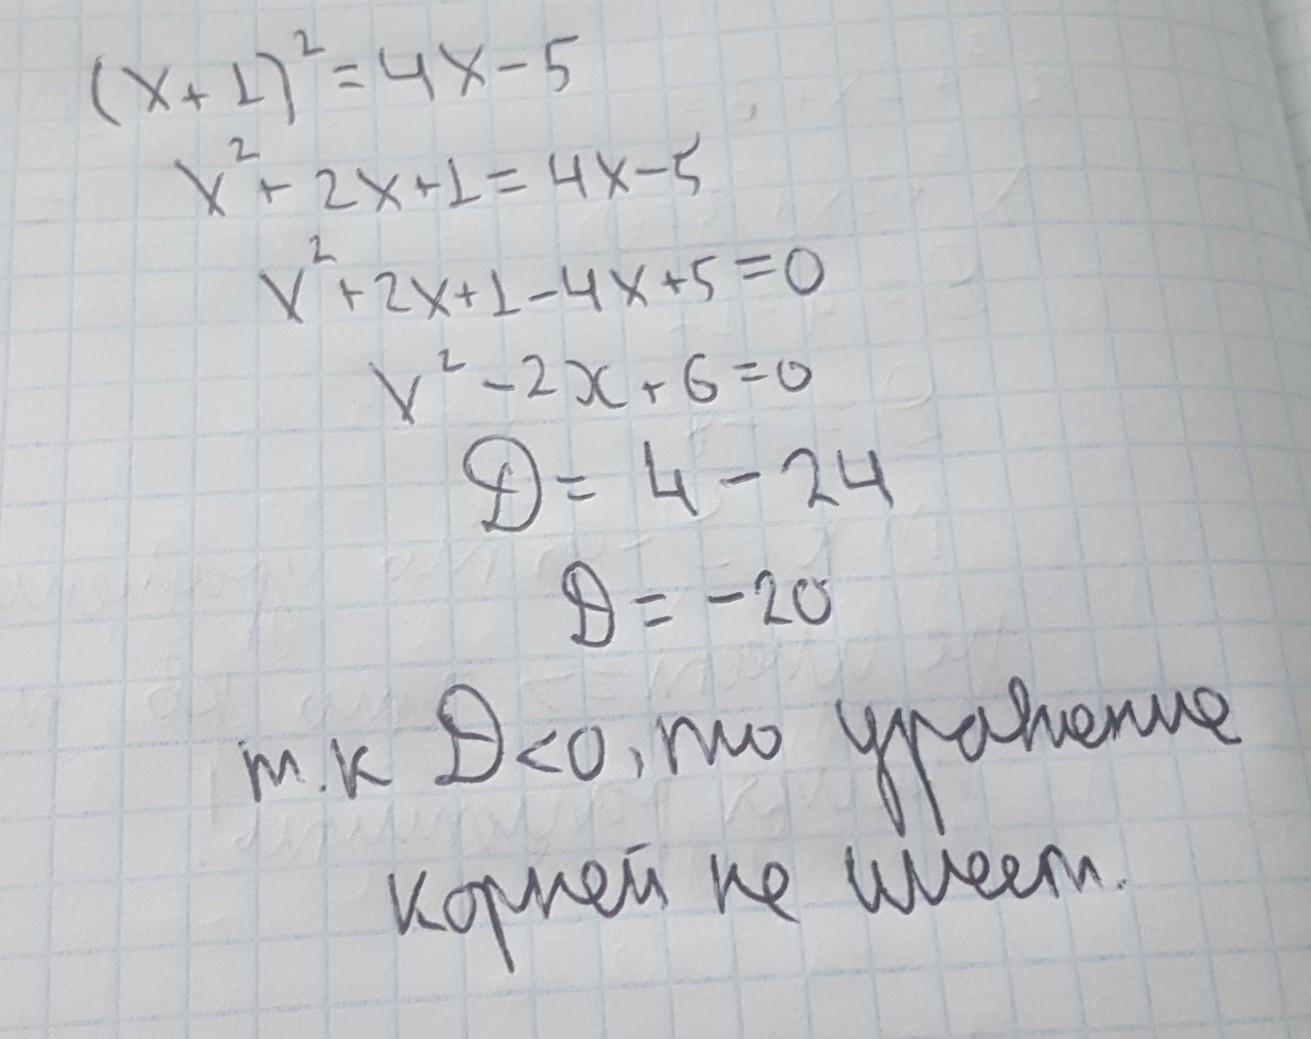 (x+1)² = 4x-5
x² + 2x+1 = 4x-5
x² + 2x+1-4x+5 = 0
x² - 2x + 6 = 0
D = 4 - 24
D = -20
т.к D<0, то уравнение
корней не имеет.